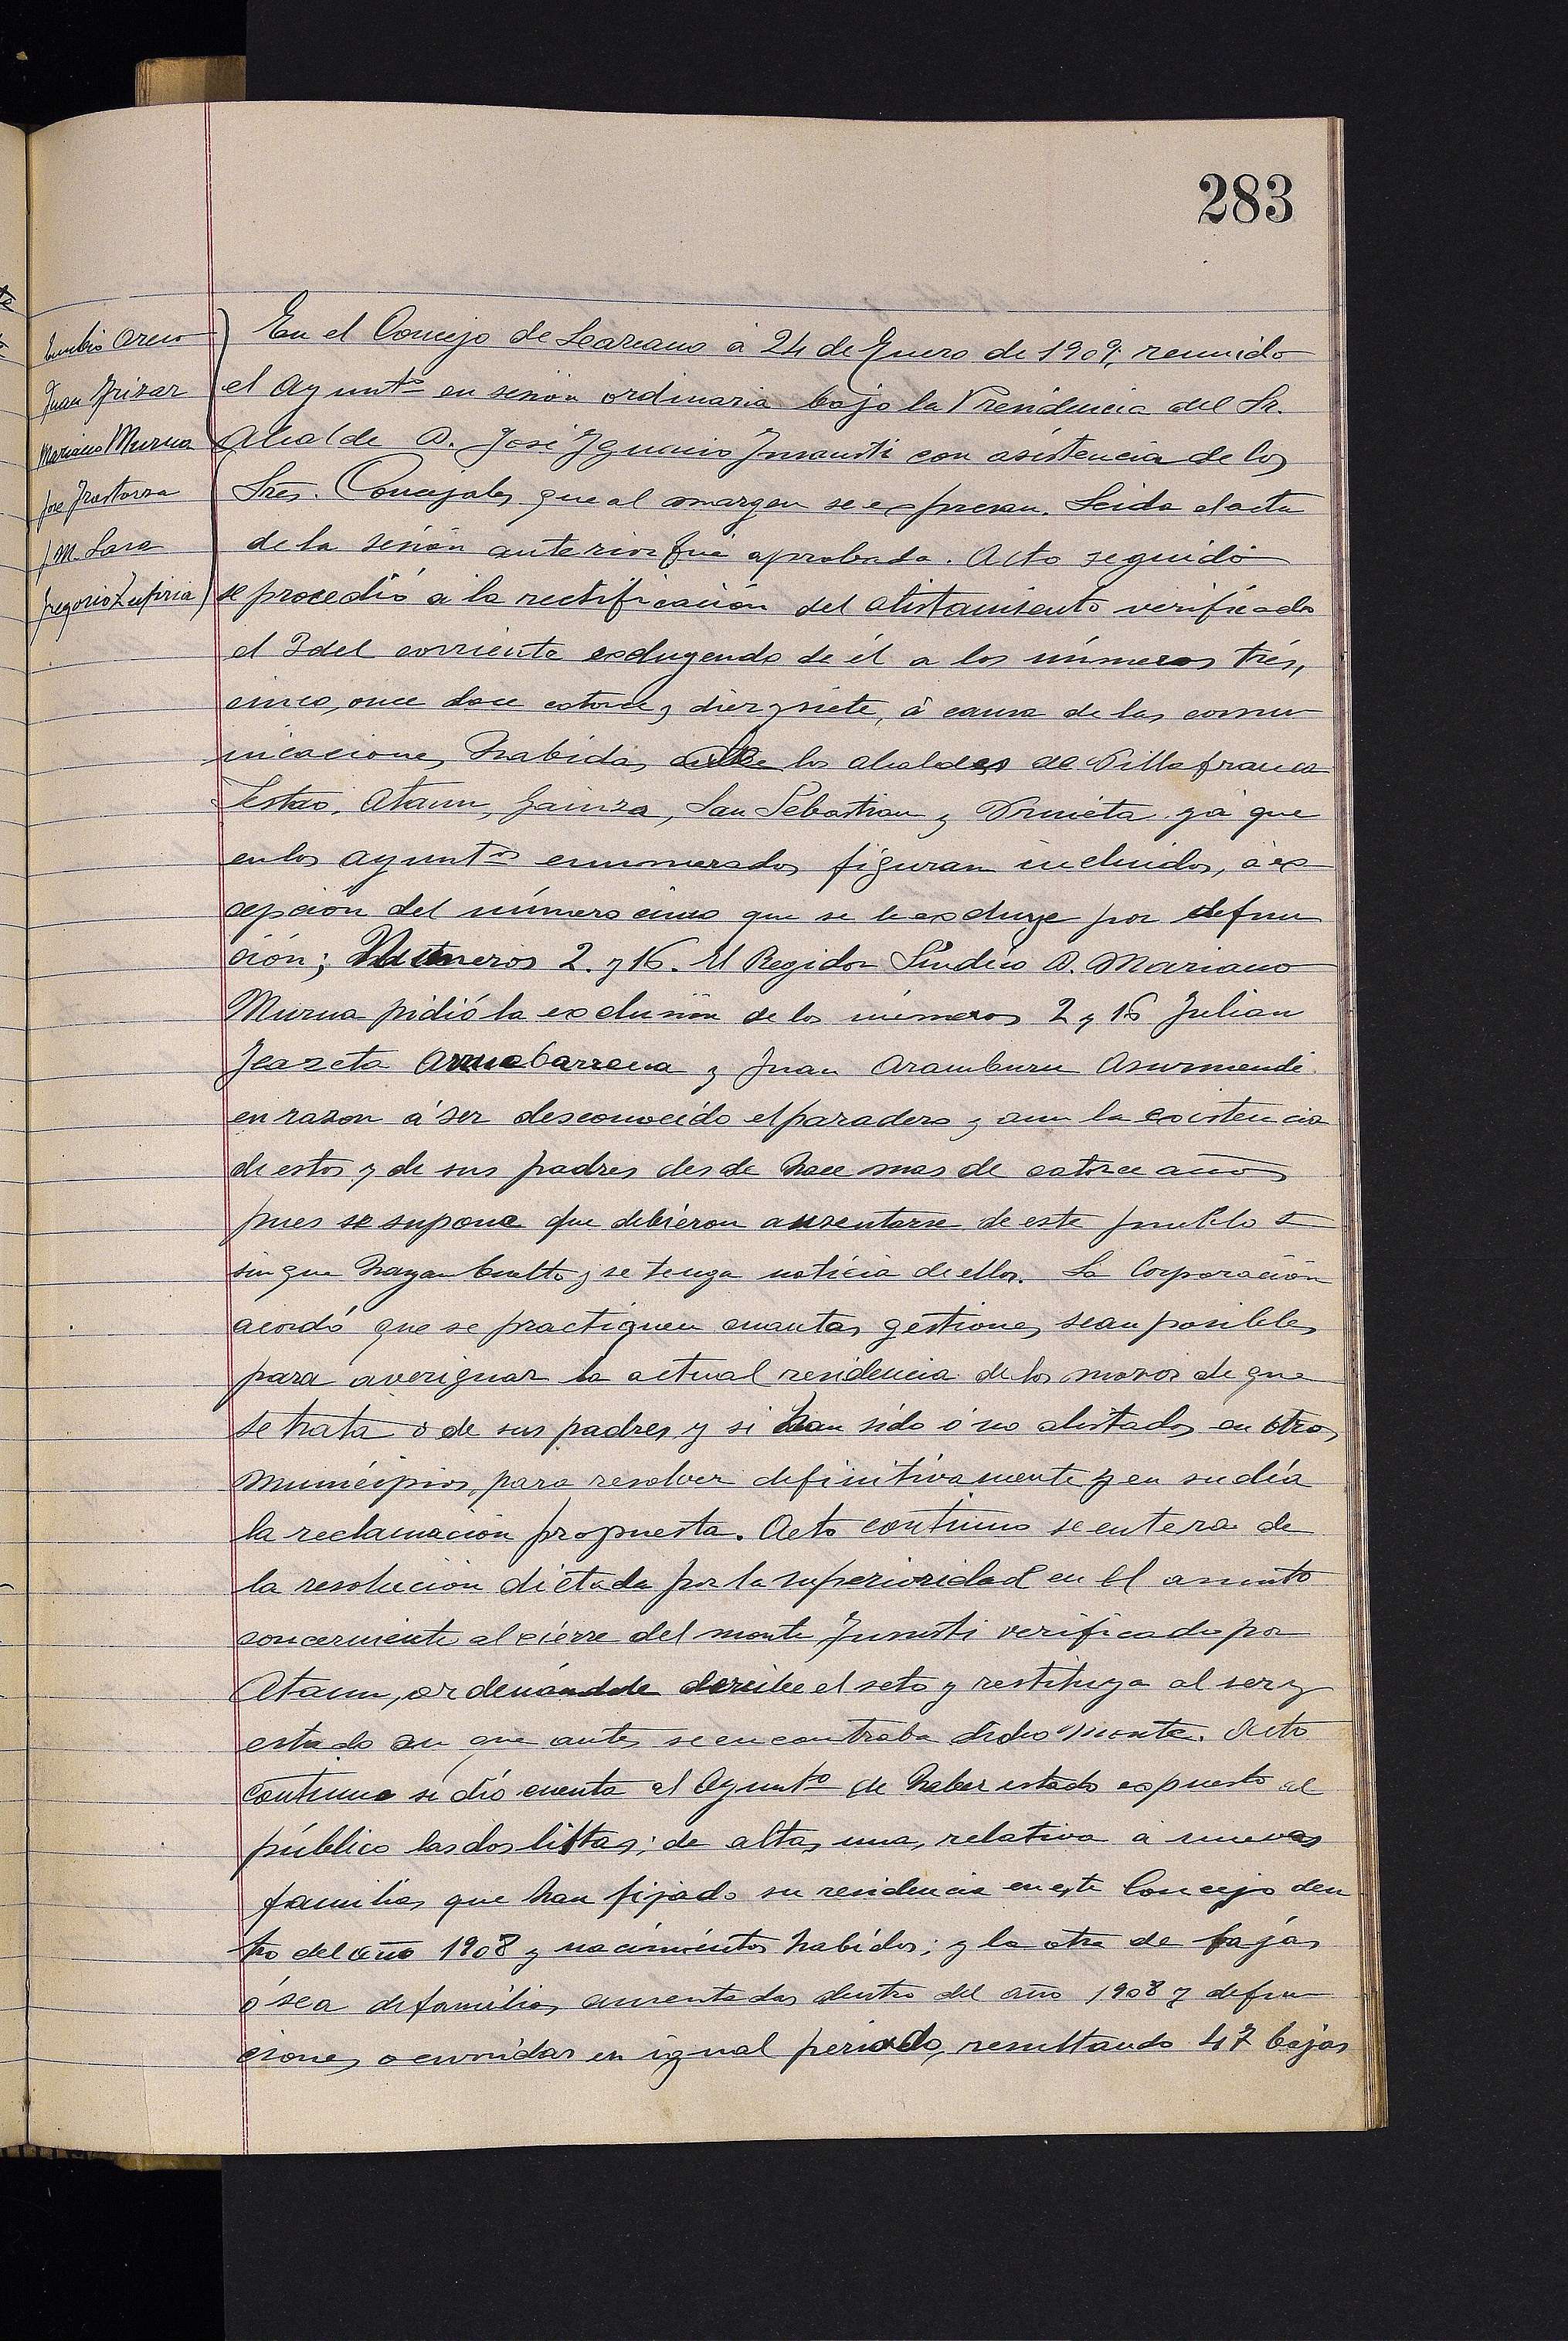 283
Eusebio Areso
Juan Yrizar
Mariano Murua
José Yrastorza
J. M. Lasa
Gregorio Zufiria
En el Concejo de Lazcano á 24 de Enero de 1909, reunido
el Ayuntº en sesión ordinaria bajo la Presidencia del Sr.
Alcalde D. José Ygnacio Insausti con asistencia de los
Srēs. Concejales que al margen se expresan. Leida el acta
de la sesión anterior fué aprobada. Acto seguido
se procedió á la rectificación del alistamiento verificado
el 3 del corriente excluyendo de él a los números trés,
cinco, once doce catorce y diez y siete, á causa de las comu
nicaciones habidas entre los alcaldes de Villafranca
Sestao, Ataun, Gainza, San Sebastian y Urnieta ya que
en los ayuntºs enumerados figuran incluidos, á ex
cepción del número cinco que se le excluye por defun
ción; Números 2. y 16. El Regidor Síndico D. Mariano
Murua pidió la exclusión de los números 2 y 16 Julian
Ycazeta Arruebarrena y Juan Aramburu Asurmendi
en razon á ser desconocido el paradero y aun la existencia
de estos y de sus padres desde hace mas de catorce años
pues se supone que debieron ausentarse de este pueblo
sin que hayan buelto y se tenga noticia de ellos. La Corporación
acordó que se practiquen cuantas gestiones sean posibles
para averiguar la actual residencia de los mozos de que
se trata o de sus padres y si han sido ó no alistados en otros
municipios, para resolver definitivamente y en su dia
la reclamación propuesta. Acto continuo se entera de
la resolucion dictada por la superioridad en el asunto
concerniente al cierre del monte Jumisti verificado por
Ataun, ordenándole derribe el seto y restituya al ser y
estado en que antes se encontraba dicho monte. Acto
continuo se dió cuenta al Ayuntº de haber estado expuesto al
público las dos listas; de altas una, relativa a nuevas
familias que han fijado su residencia en este Concejo den
tro del año 1908 y nacimientos habidos; y la otra de bajas
ó sea de familias ausentadas dentro del año 1908 y defun
ciones ocurridas en igual periodo, resultando 47 bajas